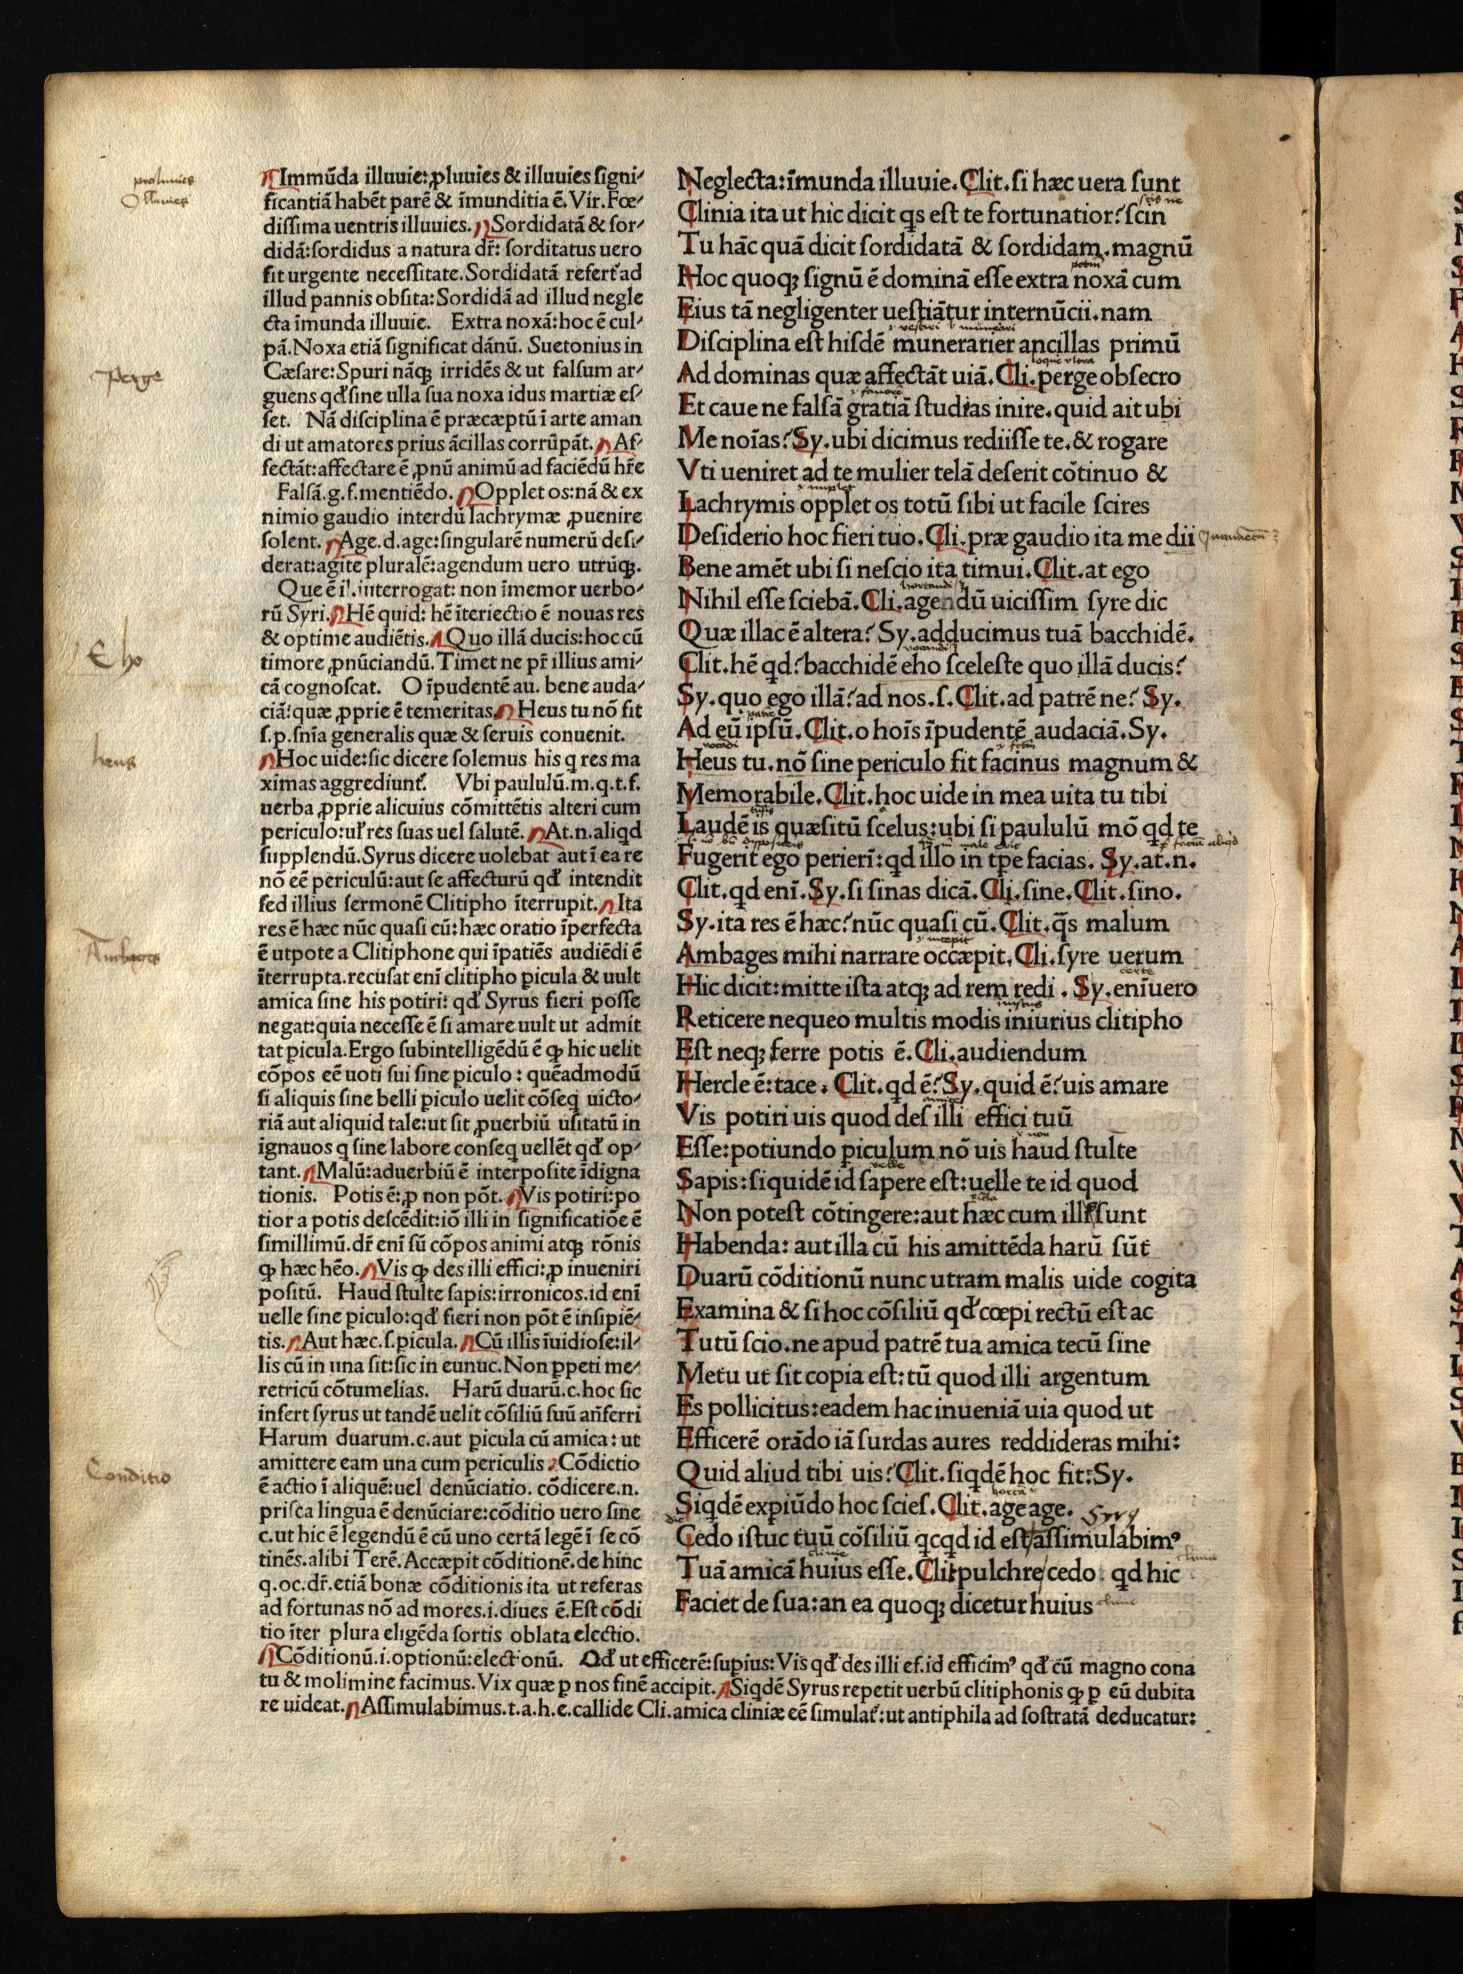 Immūda illuuie: ꝓluuies & illuuies signi-
ficantiā habēt parē & īmunditia ē. Vir. Fœ-
dissima uentris illuuies. Sordidatā & sor-
didā: sordidus a natura dr̄: sorditatus uero
fit urgente necessitate. Sordidatā refert̄ ad
illud pannis obsita: Sordidā ad illud negle
cta īmunda illuuie. Extra noxā: hoc ē cul-
pā. Noxa etiā significat dānū. Suetonius in
Cæsare: Spuri nāqꝫ irridēs & ut falsum ar-
guens qđ sine ulla sua noxa idus martiæ es-
set. Nā disciplina ē præcæptū ī arte aman
di ut amatores prius ācillas corrūpāt. Af-
fectāt: affectare ē ꝓnū animū ad faciēdū hr̄e
Falsā. g. f. mentiēdo. Opplet os: nā & ex
nimio gaudio interdū lachrymæ ꝓuenire
solent. Age. d. age: singularē numerū desi-
derat: agite pluralē: agendum uero utrūqꝫ.
Que ē il. interrogat: non īmemor uerbo-
rū Syri. Hē quid: hē īteriectio ē nouas res
& optime audiētis. Quo illā ducis: hoc cū
timore ꝓnūciandū. Timet ne pr̄ illius ami-
cā cognoscat. O īpudentē au. bene auda-
ciā: quæ ꝓprie ē temeritas. Heus tu nō fit
s. p. snīa generalis quæ & seruis conuenit.
Hoc uide: sic dicere solemus his q res ma
ximas aggrediunt̄. Vbi paululū. m. q. t. f.
uerba ꝓprie alicuius cōmittētis alteri cum
periculo: uel̄ res suas uel salutē. At. n. aliqd
supplendū. Syrus dicere uolebat aut ī ea re
nō eē periculū: aut se affecturū qđ intendit
sed illius sermonē Clitipho īterrupit. Ita
res ē hæc nūc quasi cū: hæc oratio īperfecta
ē utpote a Clitiphone qui īpatiēs audiēdi ē
īterrupta. recusat enī clitipho ꝑicula & uult
amica sine his potiri: qđ Syrus fieri posse
negat: quia necesse ē si amare uult ut admit
tat ꝑicula. Ergo subintelligēdū ē ꝙ hic uelit
cōpos eē uoti sui sine ꝑiculo: quēadmodū
si aliquis sine belli ꝑiculo uelit cōseq uicto-
riā aut aliquid tale: ut sit ꝓuerbiū usitatū in
ignauos q sine labore conseq uellēt qđ op-
tant. Malū: aduerbiū ē interposite īdigna
tionis. Potis ē: ꝓ non pōt. Vis potiri: po
tior a potis descēdit: iō illi in significatiōe ē
simillimū. dr̄ enī sū cōpos animi atqꝫ rōnis
ꝙ hæc hēo. Vis ꝙ des illi effici: ꝓ inueniri
positū. Haud stulte sapis: irronicos. id enī
uelle sine ꝑiculo: qđ fieri non pōt ē insipiē-
tis. Aut hæc. s. ꝑicula. Cū illis īuidiose: il-
lis cū in una sit: sic in eunuc. Non ꝑpeti me-
retricū cōtumelias. Harū duarū. c. hoc sic
infert syrus ut tandē uelit cōsiliū suū an̄ferri
Harum duarum. c. aut ꝑicula cū amica: ut
amittere eam una cum periculis. Cōdictio
ē actio ī aliquē: uel denūciatio. cōdicere. n.
prisca lingua ē denūciare: cōditio uero sine
c. ut hic ē legendū ē cū uno certā legē ī se cō
tinēs. alibi Terē. Accæpit cōditionē. de hinc
q. oc. dr̄. etiā bonæ cōditionis ita ut referas
ad fortunas nō ad mores. i. diues ē. Est cōdi
tio īter plura eligēda sortis oblata electio.
Cōditionū. i. optionū: electionū. Qđ ut efficerē: supius: Vis qđ des illi ef. id efficimꝰ qđ cū magno cona
tu & molimine facimus. Vix quæ ꝑ nos finē accipit. Siqdē Syrus repetit uerbū clitiphonis ꝙ ꝑ eū dubita
re uideat. Assimulabimus. t. a. h. e. callide Cli. amica cliniæ eē simulat̄: ut antiphila ad sostratā deducatur:
Neglecta: īmunda illuuie. Clit. si hæc uera sunt
Clinia ita ut hic dicit qs est te fortunatior? scin
Tu hāc quā dicit sordidatā & sordidam. magnū
Hoc quoqꝫ signū ē dominā esse extra noxā cum
Eius tā negligenter uestiātur internūcii. nam
Disciplina est hisdē munerarier ancillas primū
Ad dominas quæ affectāt uiā. Cli. perge obsecro
Et caue ne falsā gratiā studias inire. quid ait ubi
Me noīas? Sy. ubi dicimus rediisse te. & rogare
Vti ueniret ad te mulier telā deserit cōtinuo &
Lachrymis opplet os totū sibi ut facile scires
Desiderio hoc fieri tuo. Cli. præ gaudio ita me dii
Bene amēt ubi si nescio ita timui. Clit. at ego
Nihil esse sciebā. Cli. agendū uicissim syre dic
Quæ illac ē altera? Sy. adducimus tuā bacchidē.
Clit. hē qd? bacchidē eho sceleste quo illā ducis?
Sy. quo ego illā? ad nos. s. Clit. ad patrē ne? Sy.
Ad eū ipsū. Clit. o hoīs īpudentē audaciā. Sy.
Heus tu. nō sine periculo fit facinus magnum &
Memorabile. Clit. hoc uide in mea uita tu tibi
Laudē is quæsitū scelus: ubi si paululū mō qd te
Fugerit ego perieri: qd illo in tpe facias. Sy. at. n.
Clit. qd enī. Sy. si sinas dicā. Cli. sine. Clit. sino.
Sy. ita res ē hæc? nūc quasi cū. Clit. qs malum
Ambages mihi narrare occæpit. Cli. syre uerum
Hic dicit: mitte ista atqꝫ ad rem redi. Sy. enīuero
Reticere nequeo multis modis iniurius clitipho
Est neqꝫ ferre potis ē. Cli. audiendum
Hercle ē: tace. Clit. qd ē? Sy. quid ē? uis amare
Vis potiri uis quod des illi effici tuū
Esse: potiundo ꝑiculum nō uis haud stulte
Sapis: siquidē id sapere est: uelle te id quod
Non potest cōtingere: aut hæc cum illis sunt
Habenda: aut illa cū his amittēda harū sūt
Duarū cōditionū nunc utram malis uide cogita
Examina & si hoc cōsiliū qđ cœpi rectū est ac
Tutū scio. ne apud patrē tua amica tecū sine
Metu ut sit copia est: tū quod illi argentum
Es pollicitus: eadem hac inueniā uia quod ut
Efficerē orādo iā surdas aures reddideras mihi:
Quid aliud tibi uis? Clit. siqdē hoc fit: Sy.
Siqdē expiūdo hoc scies. Clit. age age. Syrꝰ
Cedo istuc tuū cōsiliū qcqd id est assimulabimꝰ
Tuā amicā huius esse. Clit. pulchre cedo. qd hic
Faciet de sua: an ea quoqꝫ dicetur huius
proluuies
Illuuies
Perge
Eho
heus
Ambages
Conditio